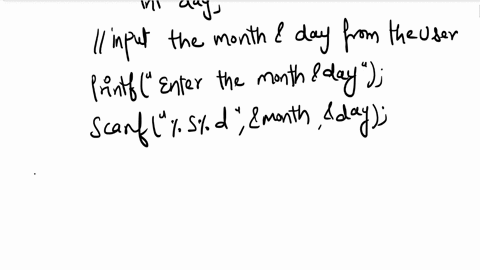 int day;
// input the month & day from the user
printf("Enter the month & day");
scanf("%s%d", &month, &day);